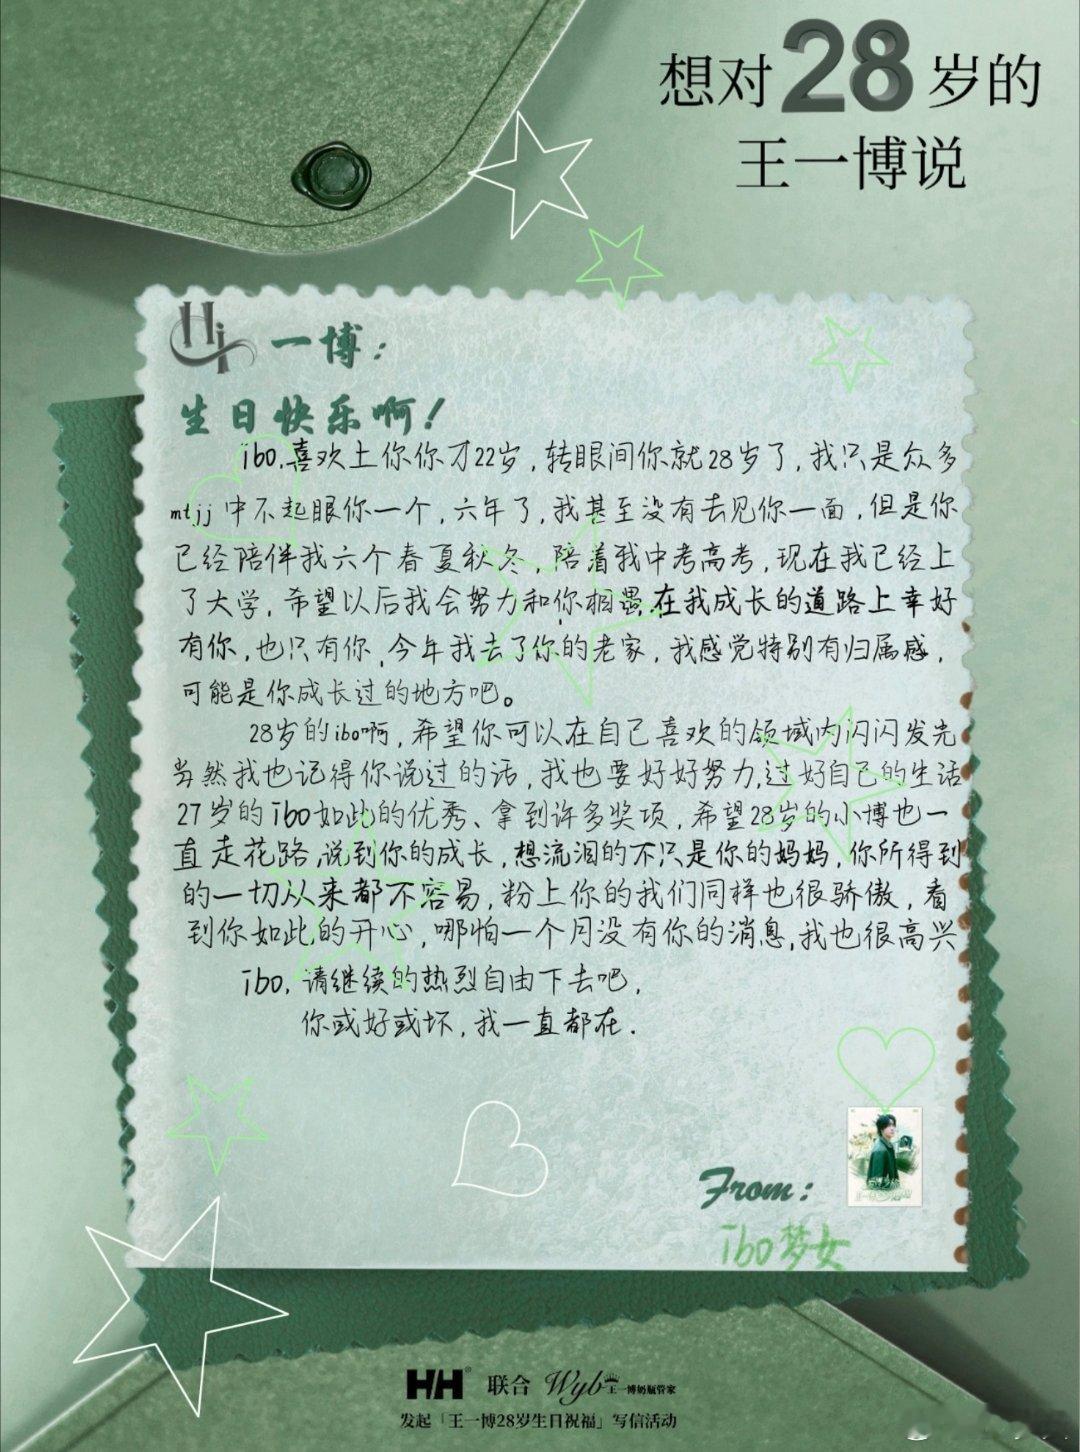 想对28岁的
王一博说
Hi 一博：
生日快乐啊！
ibo,喜欢上你你才22岁,转眼间你就28岁了,我只是众多
mtjj 中不起眼你一个,六年了,我甚至没有去见你一面,但是你
已经陪伴我六个春夏秋冬,陪着我中考高考,现在我已经上
了大学,希望以后我会努力和你相遇,在我成长的道路上幸好
有你,也只有你,今年我去了你的老家,我感觉特别有归属感,
可能是你成长过的地方吧。
28岁的ibo啊,希望你可以在自己喜欢的领域内闪闪发光
当然我也记得你说过的话,我也要好好努力,过好自己的生活
27岁的ibo如此的优秀、拿到许多奖项,希望28岁的小博也一
直走花路,说到你的成长,想流泪的不只是你的妈妈,你所得到
的一切从来都不容易,粉上你的我们同样也很骄傲,看
到你如此的开心,哪怕一个月没有你的消息,我也很高兴
ibo,请继续的热烈自由下去吧,
你或好或坏,我一直都在.
From:
ibo梦女
HH® 联合 Wyb王一博奶瓶管家
发起「王一博28岁生日祝福」写信活动